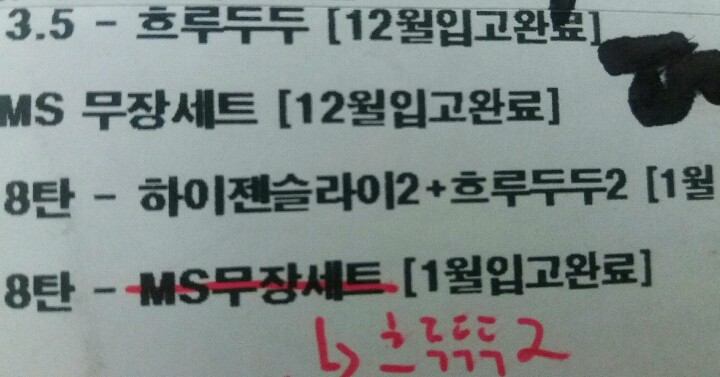 3.5 - 흐루두두 [12월입고완료]
MS 무장세트 [12월입고완료]
8탄 - 하이젠슬라이2+흐루두두2 [1월
8탄 - MS무장세트 [1월입고완료]
↳ 흐륵뜍2